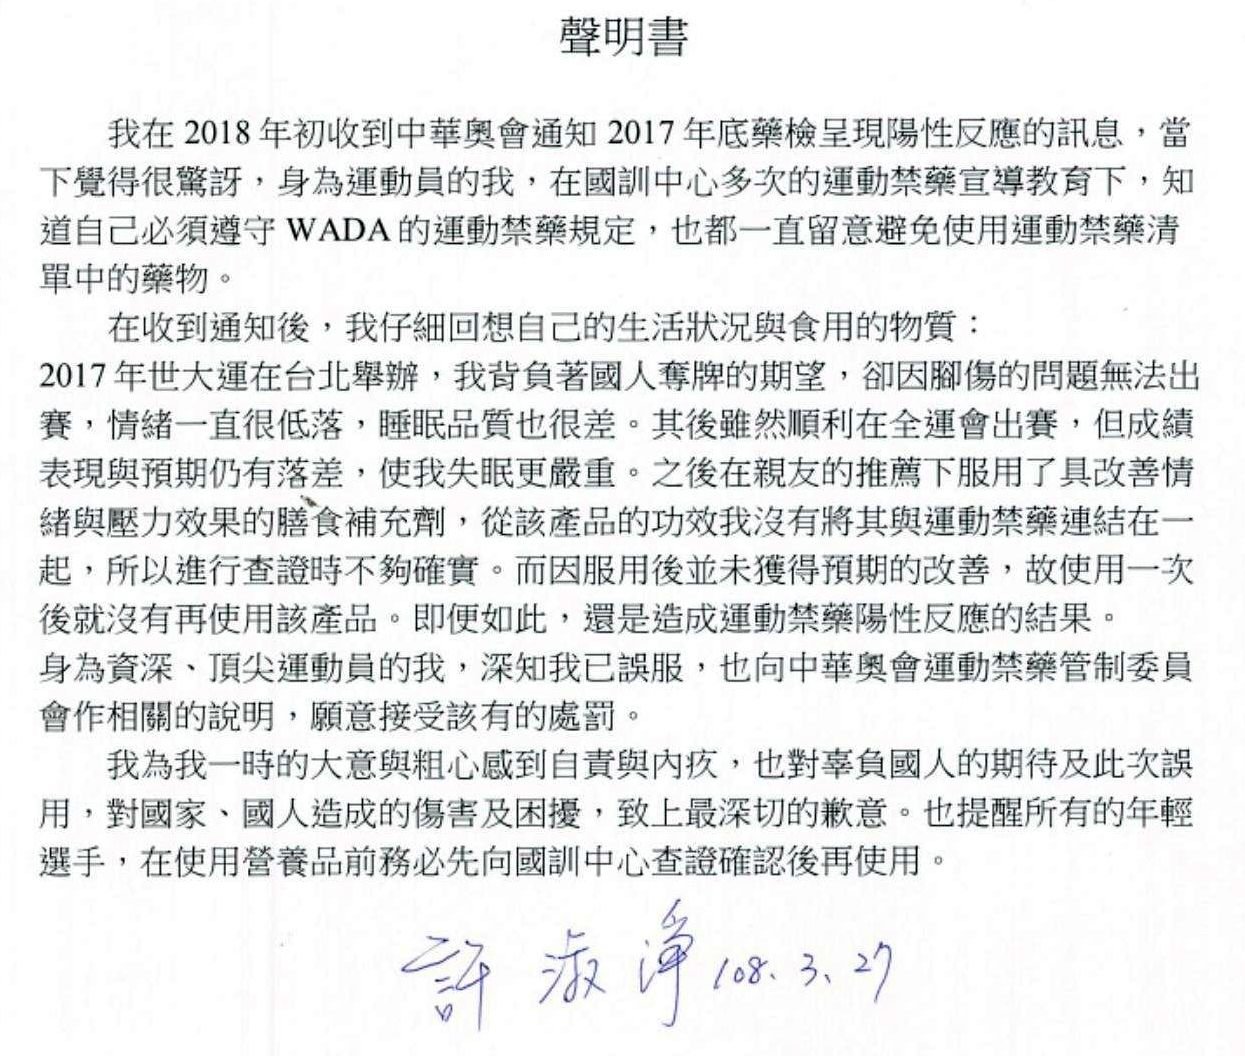 聲明書
我在 2018 年初收到中華奧會通知 2017 年底藥檢呈現陽性反應的訊息，當
下覺得很驚訝，身為運動員的我，在國訓中心多次的運動禁藥宣導教育下，知
道自己必須遵守 WADA 的運動禁藥規定，也都一直留意避免使用運動禁藥清
單中的藥物。
在收到通知後，我仔細回想自己的生活狀況與食用的物質：
2017 年世大運在台北舉辦，我背負著國人奪牌的期望，卻因腳傷的問題無法出
賽，情緒一直很低落，睡眠品質也很差。其後雖然順利在全運會出賽，但成績
表現與預期仍有落差，使我失眠更嚴重。之後在親友的推薦下服用了具改善情
緒與壓力效果的膳食補充劑，從該產品的功效我沒有將其與運動禁藥連結在一
起，所以進行查證時不夠確實。而因服用後並未獲得預期的改善，故使用一次
後就沒有再使用該產品。即便如此，還是造成運動禁藥陽性反應的結果。
身為資深、頂尖運動員的我，深知我已誤服，也向中華奧會運動禁藥管制委員
會作相關的說明，願意接受該有的處罰。
我為我一時的大意與粗心感到自責與內疚，也對辜負國人的期待及此次誤
用，對國家、國人造成的傷害及困擾，致上最深切的歉意。也提醒所有的年輕
選手，在使用營養品前務必先向國訓中心查證確認後再使用。
許淑淨 108.3.27